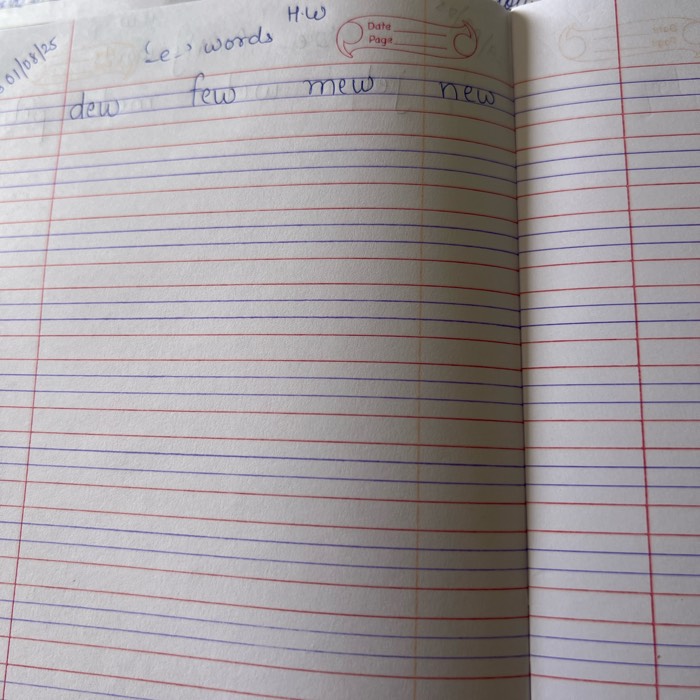 H.W
01/08/25
'e-' words
Date
Page
dew few mew new